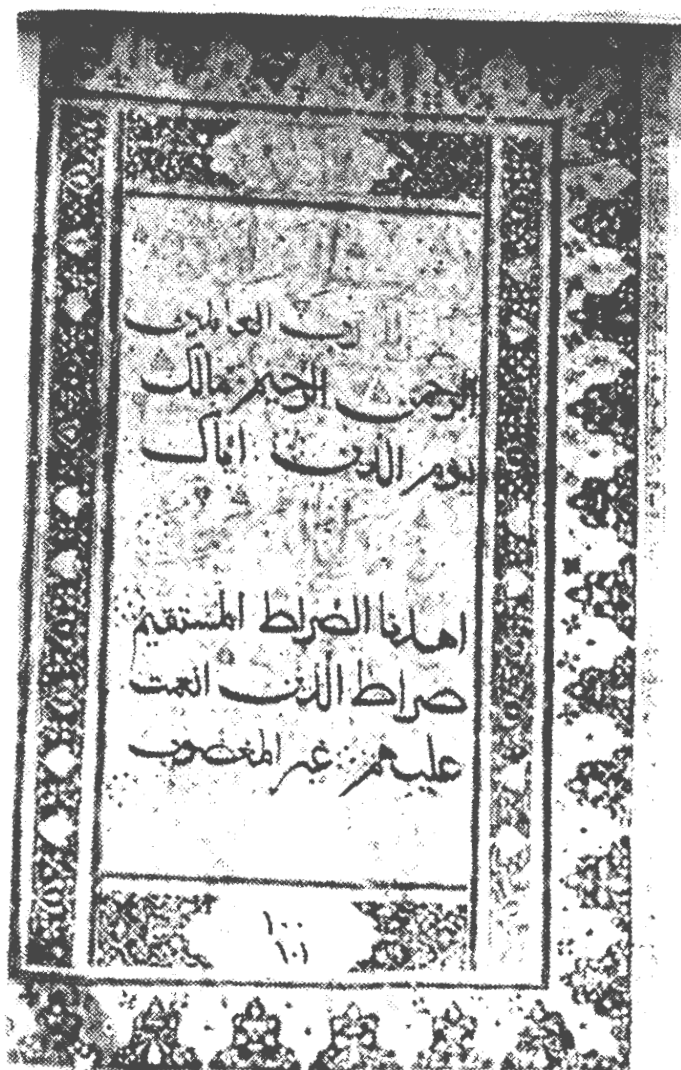 رب العالمين
الرحمن الرحيم مالك
يوم الدين اياك
اهدنا الصراط المستقيم
صراط الذين انعمت
عليهم غير المغضوب
١٠٠
١٠١